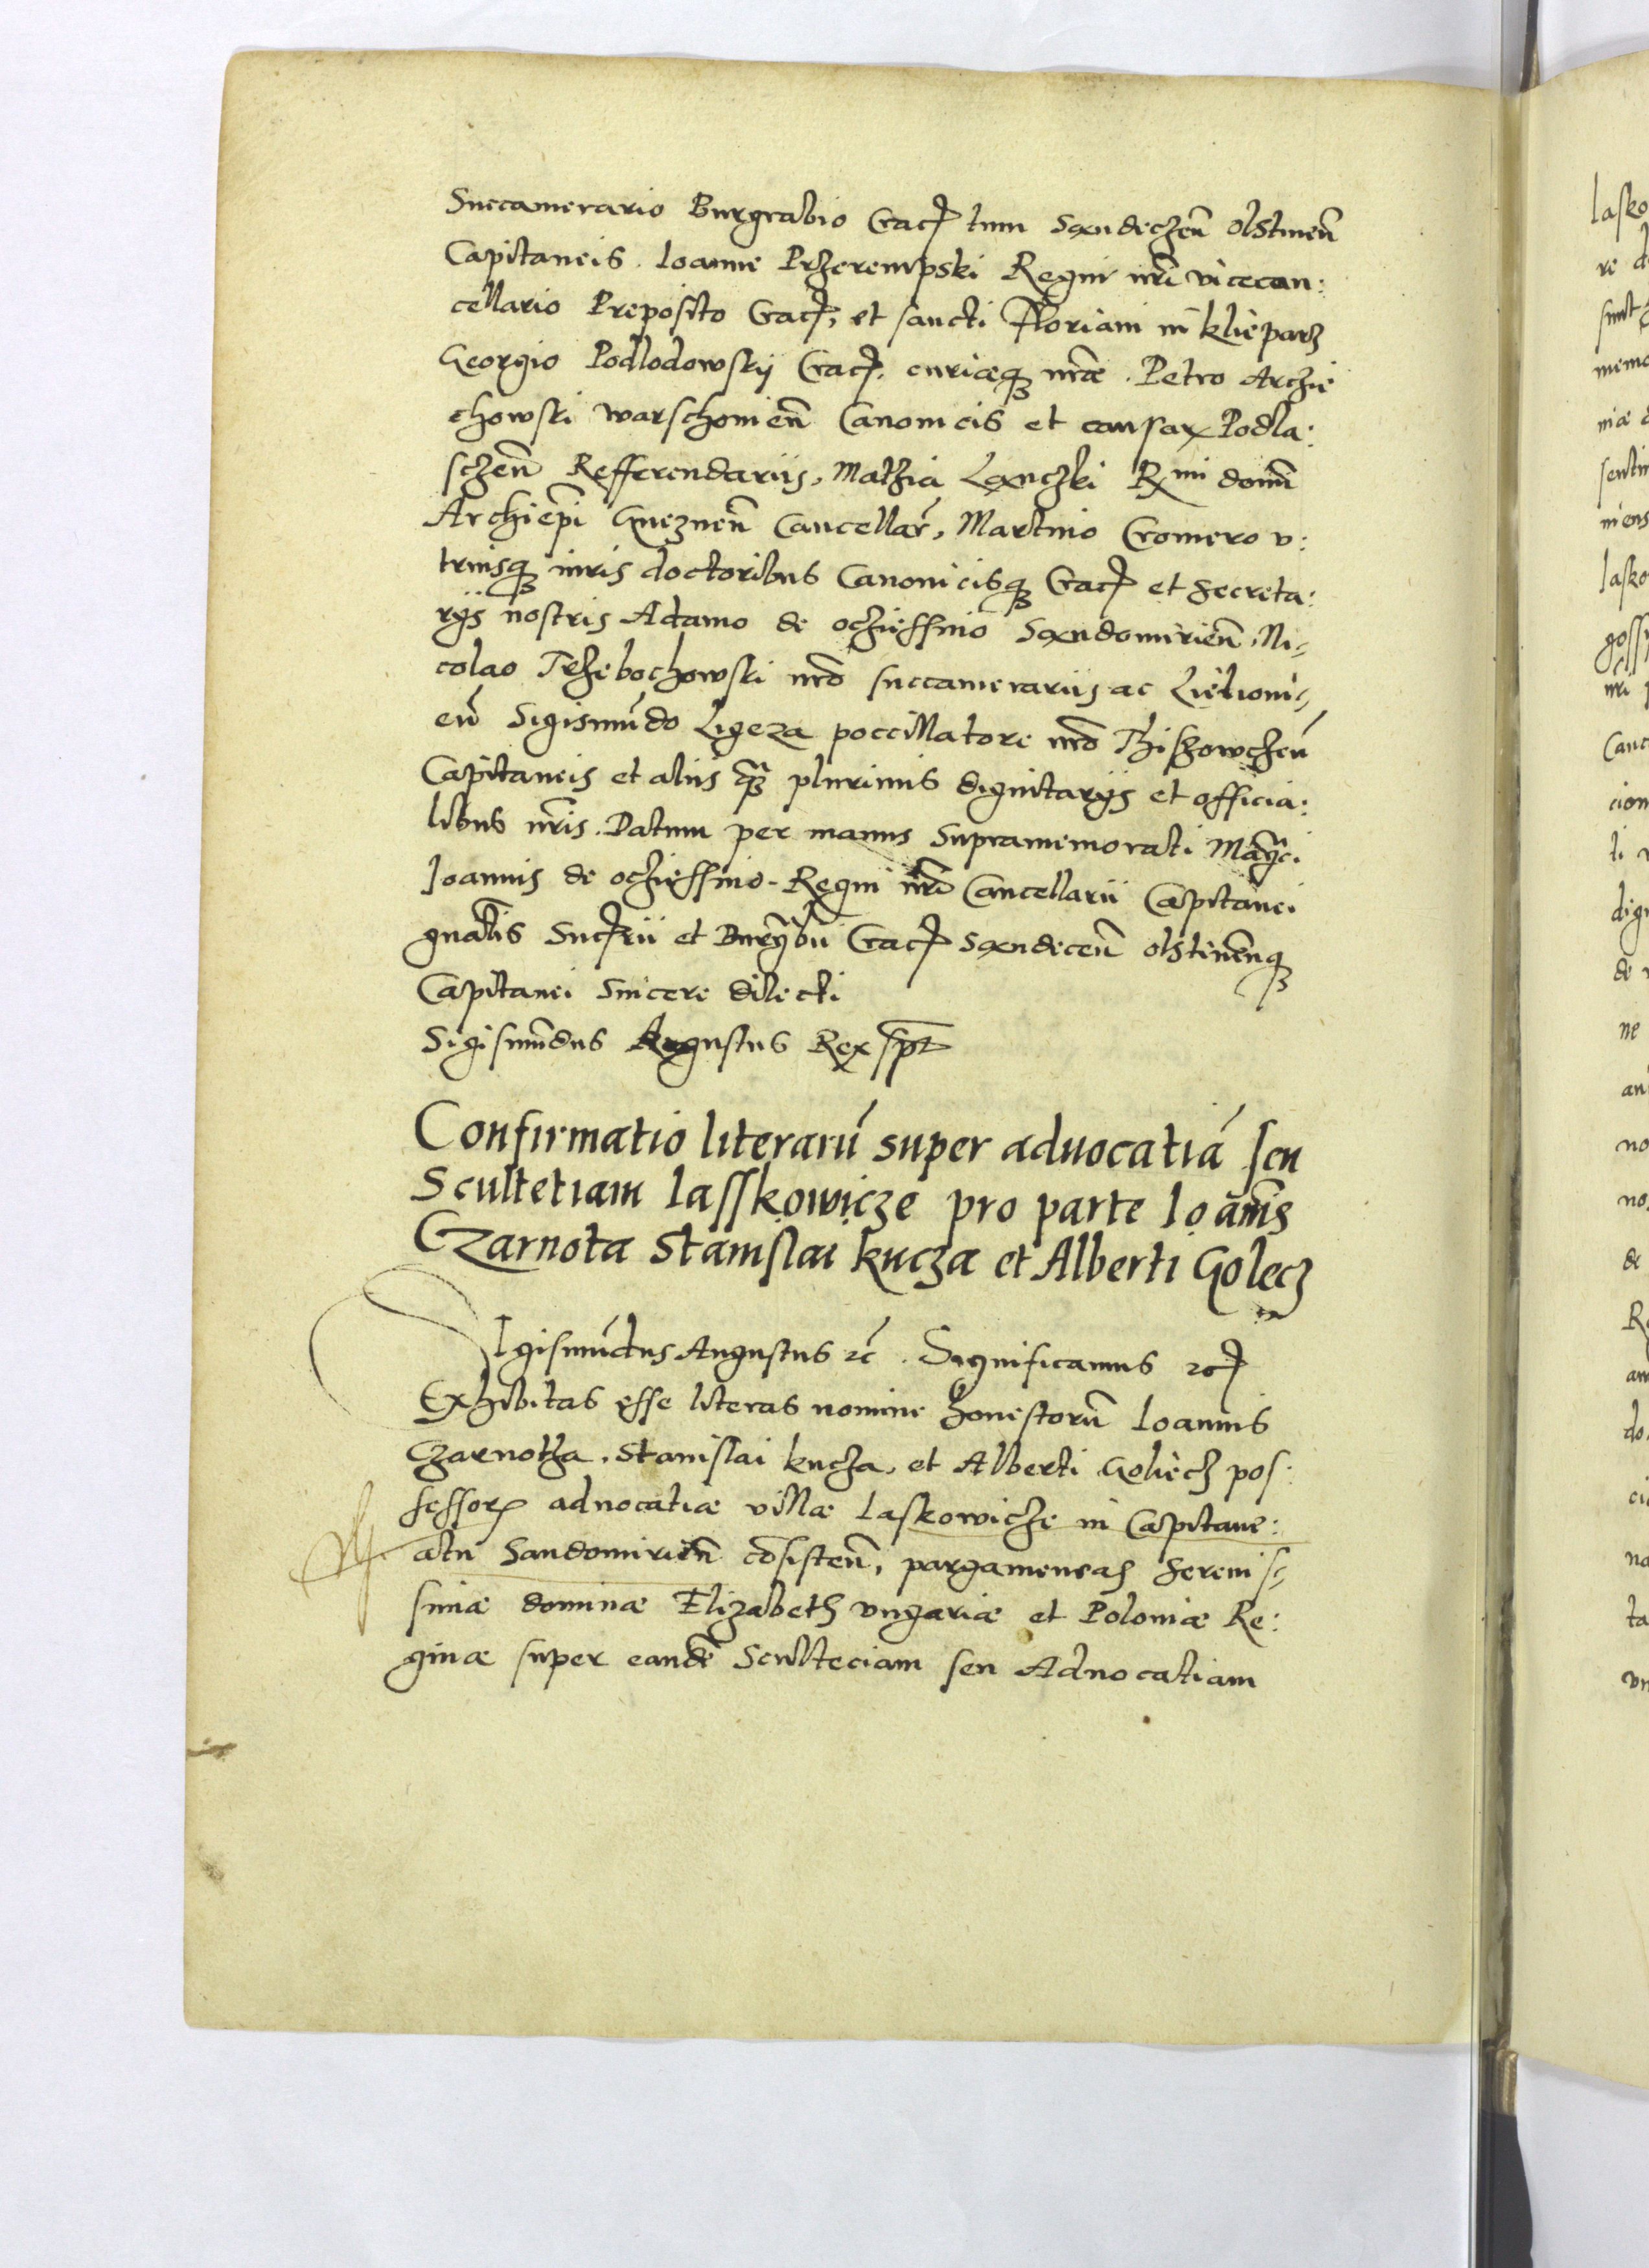 Succamerario Burgrabio Crac: tum Sandeczeñ Olstineñ
Capitaneis. Ioanne Przerempski Regni nri vicecan:
cellario Preposito Crac:, et sancti Floriani in klieparz
Georgio Podlodowskij Crac: curiaeq nrae. Petro Arczie
chowski warschouieñ Canonicis et causar Podla:
scheñ Refferendariis, Mathia Lanczki Rmi domi
Archiepi Gneznen Cancellar, Martino Cromero v:
triusq iuris doctoribus Canonicisq Crac: et Secreta:
rijs nostris Adamo de ocziessino Sandomirieñ, Ni,
colao Trzebochowski nro succamerariis ac Lielioni,
eñ Sigismũdo Ligeza poccillatore nro Thiszowczeñ
Capitaneis et aliis qz plurimis dignitarijs et officia:
libus nris. Datum per manus Supramemorati Magci
Ioannis de oczieffino. Regni nri Cancellarii Capitanei
gnalis Succrii et Burgrabii Crac: Sandeceñ olstineñq
Capitanei Sincere dilecti
Sigismũdus Augustus Rex spt
Confirmatio literarũ super aduocatiã seu
Scultetiam lasskowicze pro parte Ioãnis
Czarnota Stanislai kucza et Alberti Golecz
SIgismũdus Augustus rc. Significamus rc:
Exhibitas esse literas nomine honestorũ Ioannis
Czarnotha, Stanislai kucza, et Alberti Goliecz pos:
sessor aduocatiae villae laskowicze in Capitane:
atu Sandomirieñ cõsisteñ, pargameneas Sereniss,
simae dominae Elizabeth vngariae et Poloniae Re:
ginae super eandẽ Sculteciam seu Aduocatiam